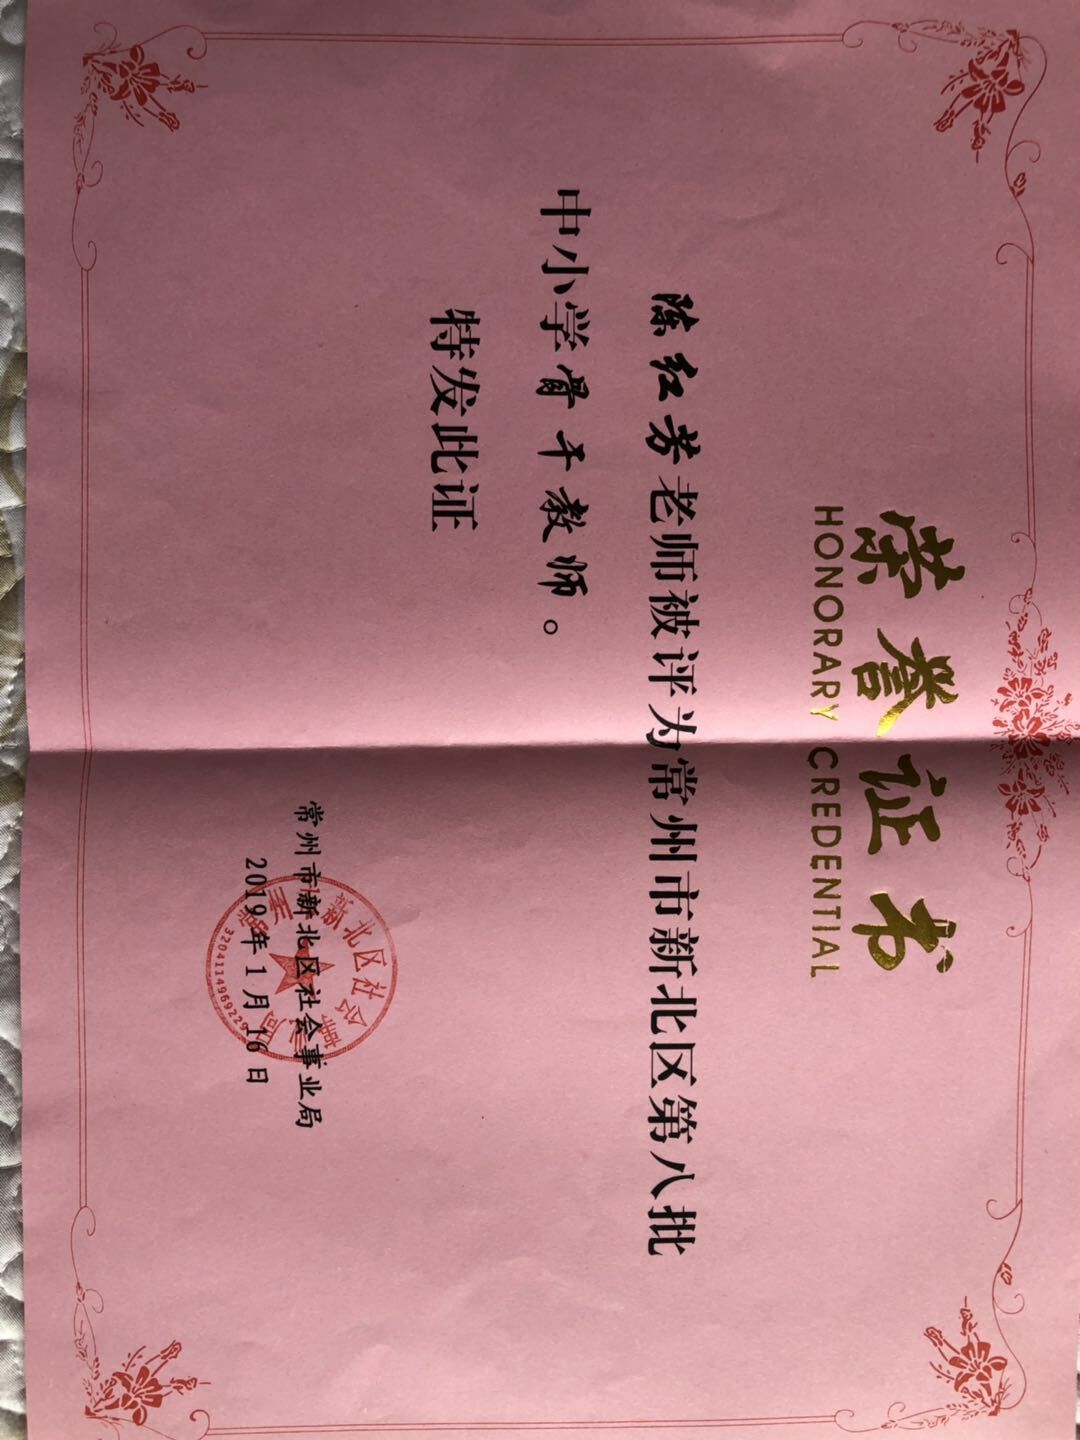 荣誉证书
HONORARY CREDENTIAL
陈红芳老师被评为常州市新北区第八批
中小学骨干教师。
特发此证
常州市新北区社会事业局
2019年1月16日
3204114969229